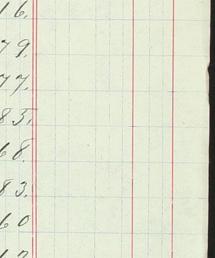 16.
79.
77.
85.
68.
83.
60